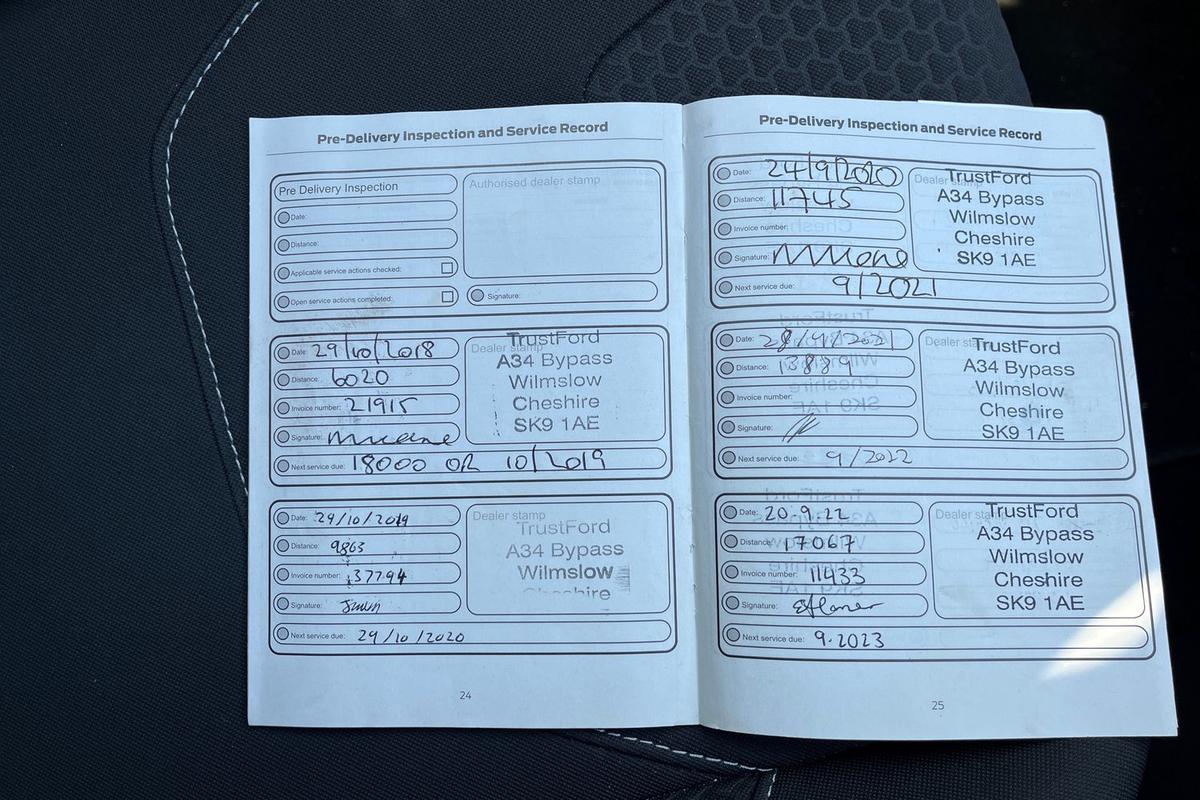 Pre-Delivery Inspection and Service Record
Pre Delivery Inspection
Date:
Distance:
Applicable service actions checked:
Open service actions completed:
Authorised dealer stamp
Signature:
Date: 29/10/2018
Distance: 6020
Invoice number: 21915
Signature:
Next service due: 18000 OR 10/2019
Dealer stamp
TrustFord
A34 Bypass
Wilmslow
Cheshire
SK9 1AE
Date: 29/10/2019
Distance: 9863
Invoice number: 37794
Signature:
Next service due: 29/10/2020
Dealer stamp
TrustFord
A34 Bypass
Wilmslow
Cheshire
24
Pre-Delivery Inspection and Service Record
Date: 24/9/2020
Distance: 11745
Invoice number:
Signature:
Next service due: 9/2021
Dealer stamp
TrustFord
A34 Bypass
Wilmslow
Cheshire
SK9 1AE
Date:
Distance: 13889
Invoice number:
Signature:
Next service due: 9/2022
Dealer stamp
TrustFord
A34 Bypass
Wilmslow
Cheshire
SK9 1AE
Date: 20.9.22
Distance: 17067
Invoice number: 11433
Signature:
Next service due: 9.2023
Dealer stamp
TrustFord
A34 Bypass
Wilmslow
Cheshire
SK9 1AE
25